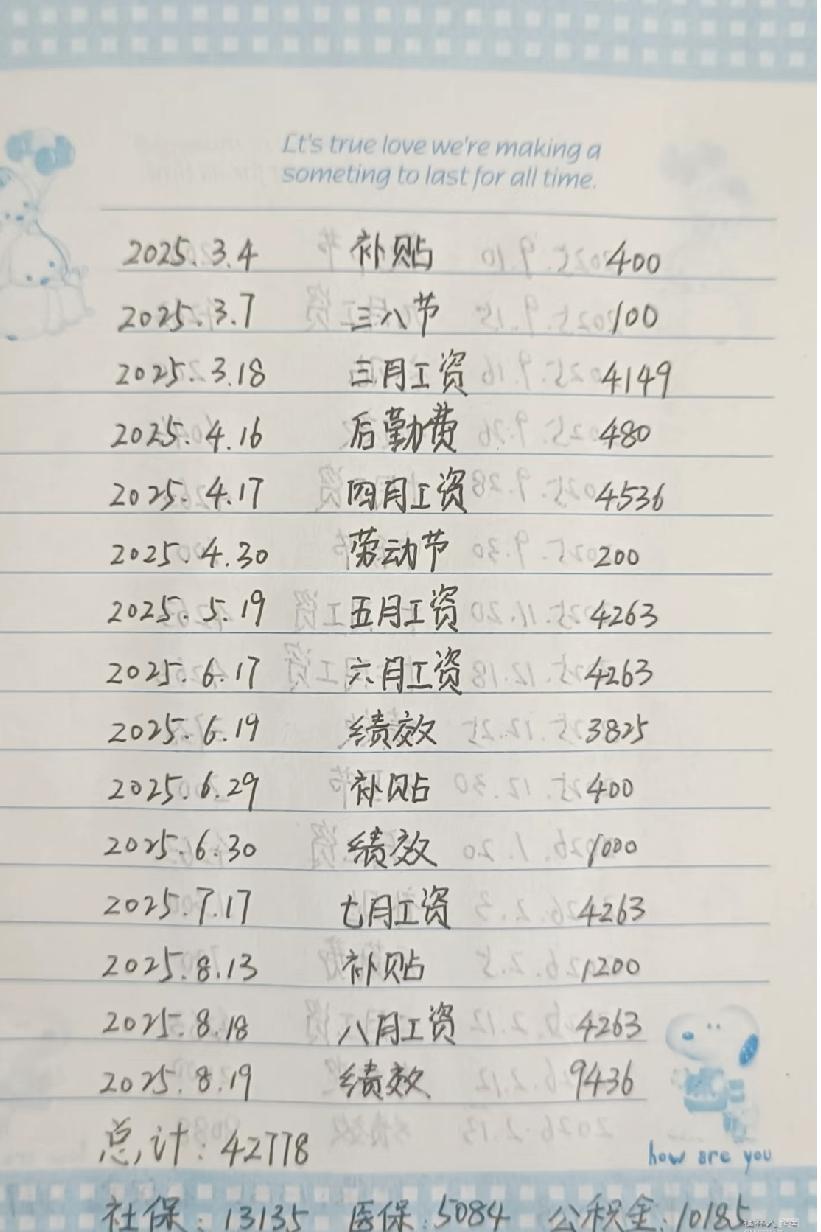 Lt's true love we're making a
someting to last for all time.
2025.3.4 补贴 400
2025.3.7 三八节 100
2025.3.18 三月工资 4149
2025.4.16 后勤费 480
2025.4.17 四月工资 4536
2025.4.30 劳动节 200
2025.5.19 五月工资 4263
2025.6.17 六月工资 4263
2025.6.19 绩效 3825
2025.6.29 补贴 400
2025.6.30 绩效 1000
2025.7.17 七月工资 4263
2025.8.13 补贴 1200
2025.8.18 八月工资 4263
2025.8.19 绩效 9436
总计:42778
how are you
社保:13135 医保:5084 公积金:10185